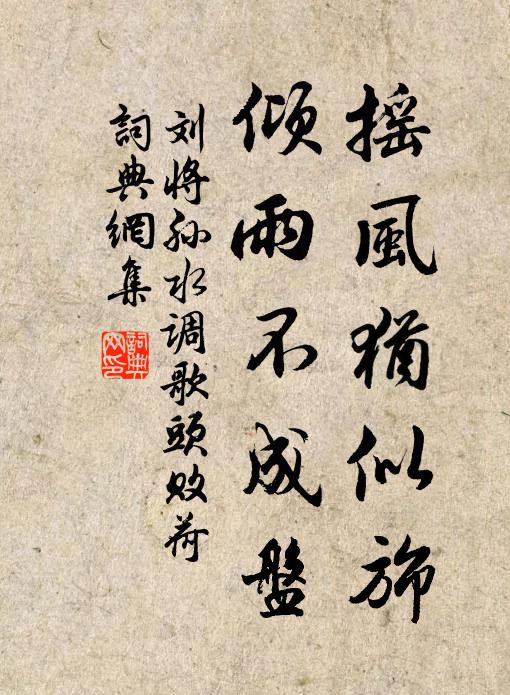 摇風猶似旆
傾雨不成盤
刘将孫水调歌頭败荷
詞典網集
詞典網印